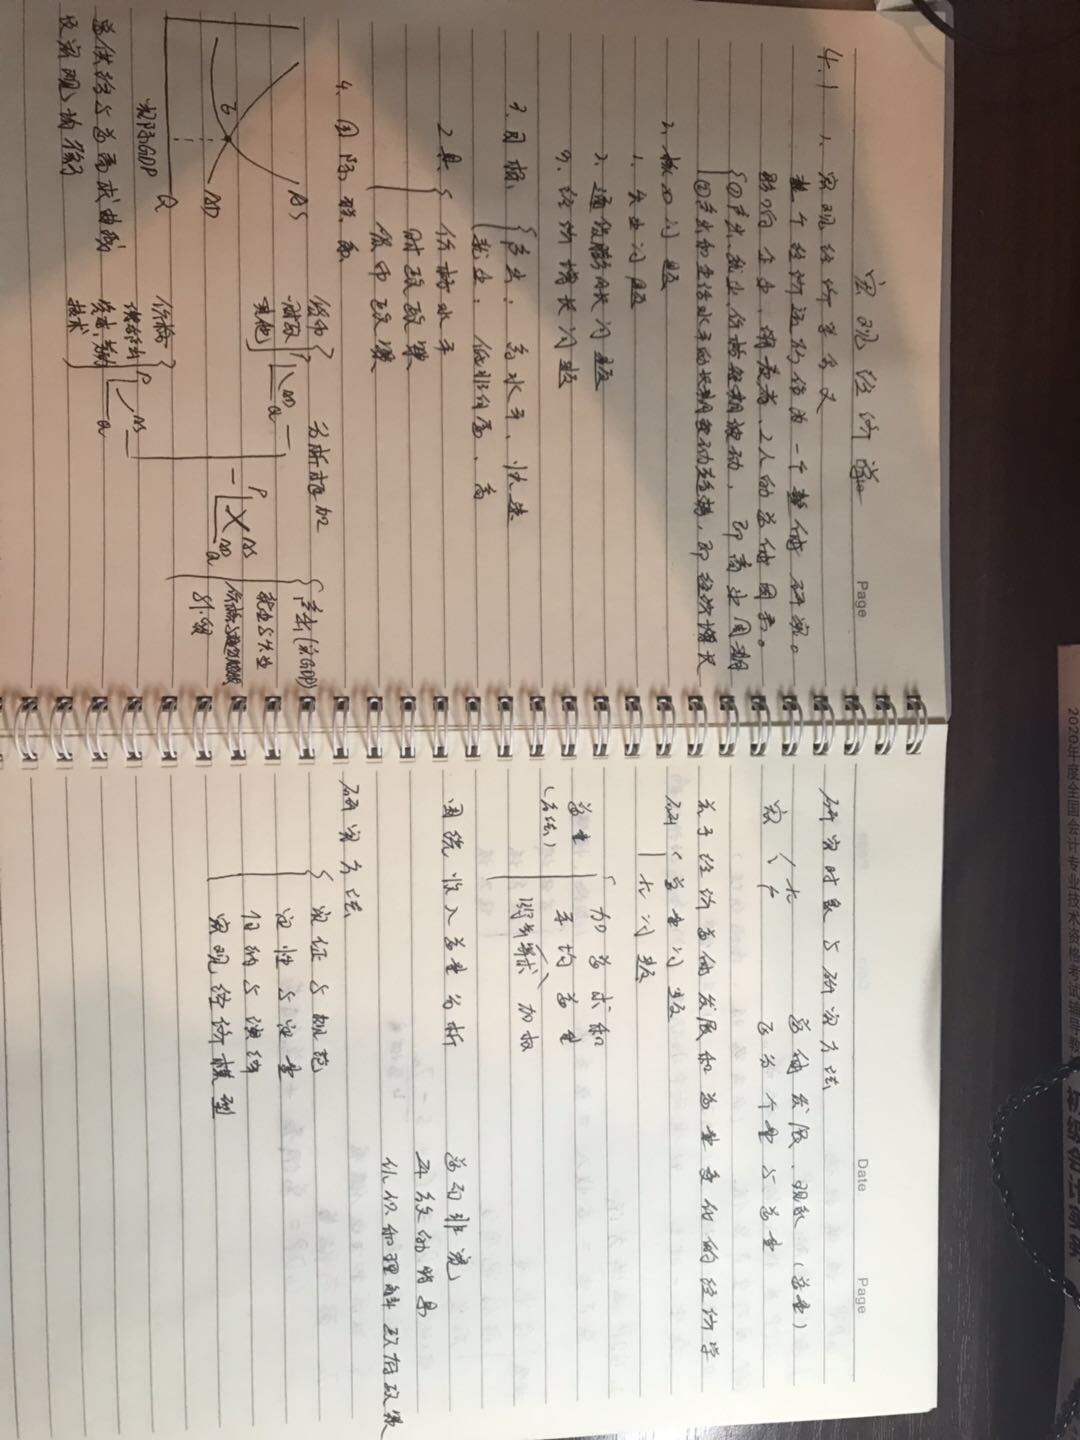 宏观经济学
Page
4.1 1. 宏观经济学含义
整个经济活动作为一个整体研究。
影响企业、消费者、工人的总体因素。
①产出、就业、价格短期波动，即商业周期
②产出和生活水平的长期变动趋势，即经济增长
2. 核心问题
1. 失业问题
2. 通货膨胀问题
3. 经济增长问题
3. 目标
产出、高水平、快速
就业、低非自愿、高
2具
价格水平
财政政策
货币政策
4. 国际联系
货币
财政
其他
P
AD
Q
价格
潜在产出
资本、劳动
技术
P
AS
Q
分析框架
P
AS
AD
Q
产出(实GDP)
就业与失业
价格与通货膨胀
外贸
AS
E
AD
Q
实际GDP
总供给与总需求曲线
及宏观均衡
Date
Page
研究对象与研究方法
宏
大
总体发展、现象(总量)
区分个量与总量
关于经济总体发展和总量变化的经济学
研
总量问题
大问题
总量
(方法)
加总求和
平均总量
加权
国统收入总量分析
总而非说
有效的背景
认识和理解政府政策
研究方法
实证与规范
定性与定量
归纳与演绎
宏观经济模型
2020年度全国会计专业技术资格考试辅导教
初级会计实务